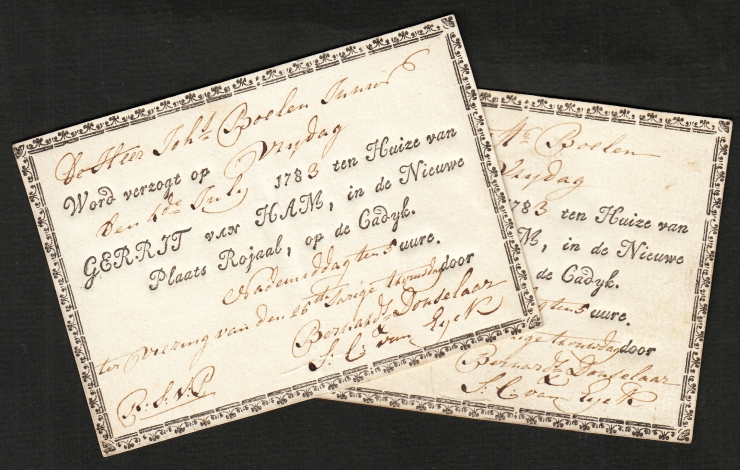 De Heer Joh.s Boelen Junior
Vrijdag
Word verzogt op
den 6de Juny 1783 ten Huize van
GERRIT van HAM, in de Nieuwe
Plaats Rojaal, op de Cadyk.
Nademiddag ten 5 uure.
ter viering van den 26ste Jarige trouwdag door
Bernard Donselaar
&
J. C. van Eyck
R: S: V: P
Boelen
Vrijdag
783 ten Huize van
M, in de Nieuwe
de Cadyk.
ten 5 uure.
rige trouwdag door
Bernard Donselaar
&
J. C. van Eyck